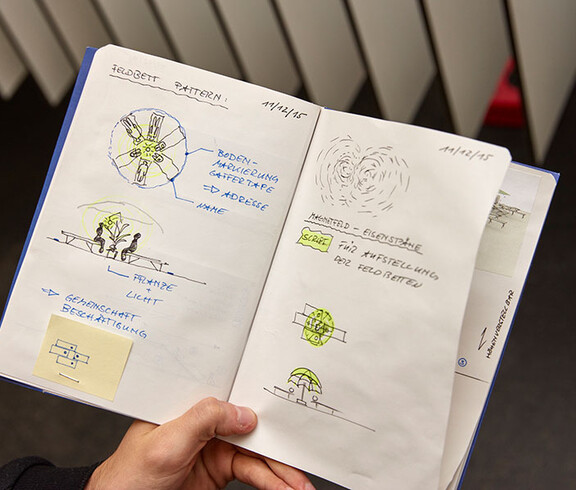 FELDBETT PATTERN:
11/12/15
BODEN-
MARKIERUNG
GAFFERTAPE
⇒ ADRESSE
NAME
PFLANZE
+
LICHT
⇒ GEMEINSCHAFT
BESCHÄFTIGUNG
11/12/15
MAGNETFELD - EISENSPÄNE
FÜR AUFSTELLUNG
DER FELDBETTEN
HÖHENVERSTELLBAR